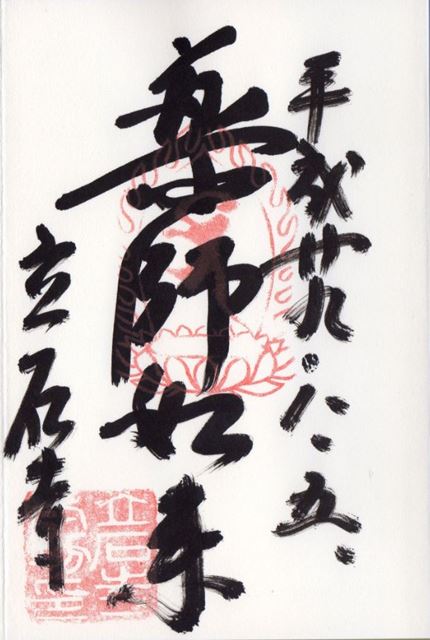 平成廿九・八、五、
薬師如来
立石寺
立石寺